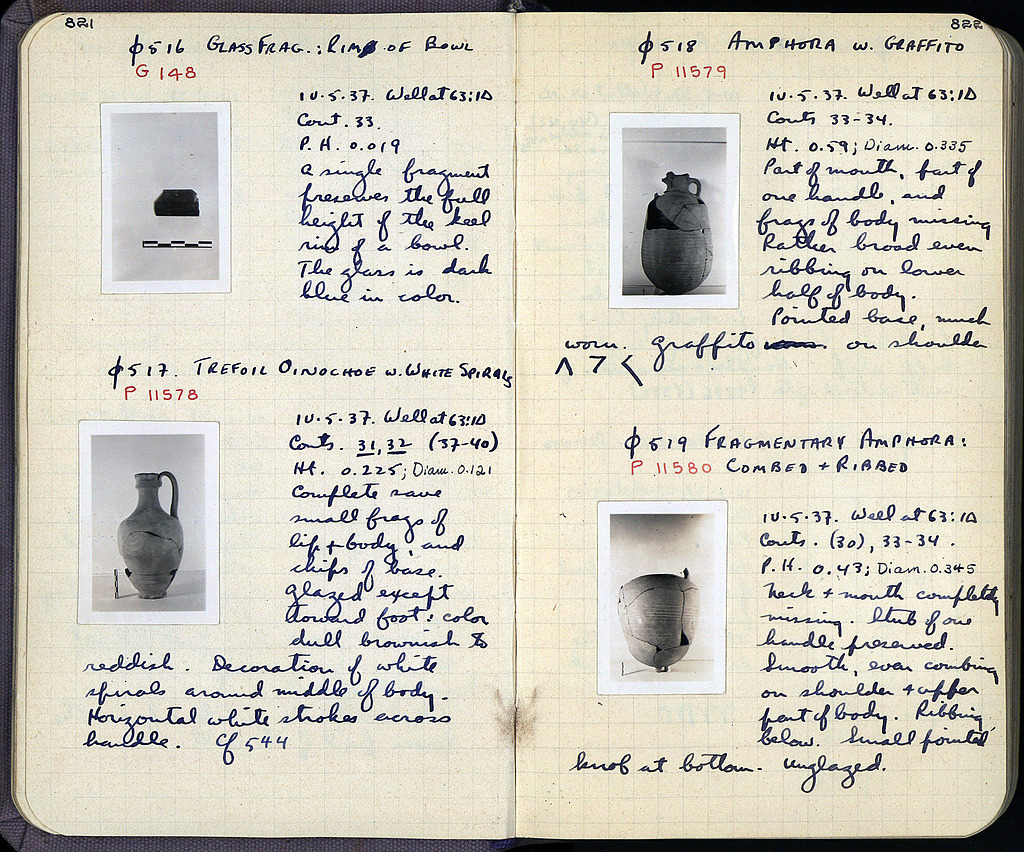 821
φ516 GLASS FRAG.: RIM OF BOWL
G 148
IV.5.37. Well at 63:ΙΔ
Cont. 33.
P.H. 0.019
A single fragment
preserves the full
height of the keel
rim of a bowl.
The glass is dark
blue in color.
φ517. TREFOIL OINOCHOE W. WHITE SPIRALS
P 11578
IV.5.37. Well at 63:ΙΔ
Conts. 31, 32 (37-40)
Ht. 0.225; Diam. 0.121
Complete save
small frags of
lip + body, and
chips of base.
Glazed except
toward foot: color
dull brownish to
reddish. Decoration of white
spirals around middle of body.
Horizontal white strokes across
handle. Cf 544
822
φ518 AMPHORA W. GRAFFITO
P 11579
IV.5.37. Well at 63:ΙΔ
Conts 33-34.
Ht. 0.59; Diam. 0.335
Part of mouth, part of
one handle, and
frags of body missing
Rather broad even
ribbing on lower
half of body.
Pointed base, much
worn. Graffito on shoulder
φ519 FRAGMENTARY AMPHORA:
P 11580 COMBED + RIBBED
IV.5.37. Well at 63:ΙΔ
Conts. (30), 33-34.
P.H. 0.43; Diam. 0.345
Neck + mouth completely
missing. Stub of one
handle preserved.
Smooth, even combing
on shoulder + upper
part of body. Ribbing
below. Small pointed
knob at bottom. Unglazed.